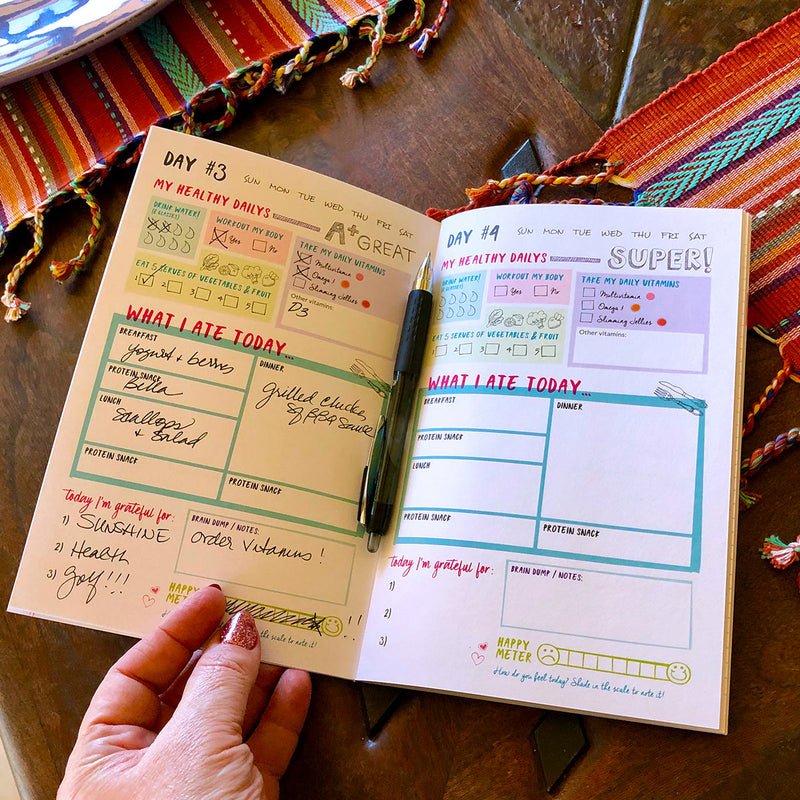 DAY #3
SUN MON TUE WED THU FRI SAT
MY HEALTHY DAILYS
A+ GREAT
DRINK WATER!
(8 GLASSES)
WORKOUT MY BODY
Yes No
TAKE MY DAILY VITAMINS
Multivitamin
Omega 3
Slimming Jellies
Other vitamins:
D3
EAT 5 SERVES OF VEGETABLES & FRUIT
1 2 3 4 5
WHAT I ATE TODAY...
BREAKFAST
Yogurt + berries
PROTEIN SNACK
Bella
LUNCH
Scallops
& Salad
PROTEIN SNACK
DINNER
Grilled chicken
BBQ Sauce
PROTEIN SNACK
Today I'm grateful for:
1) SUNSHINE
2) Health
3) golf!!!
BRAIN DUMP / NOTES:
order Vitamins!
HAPPY
METER
!!
the scale to note it!
DAY #4
SUN MON TUE WED THU FRI SAT
MY HEALTHY DAILYS
SUPER!
DRINK WATER!
(8 GLASSES)
WORKOUT MY BODY
Yes No
TAKE MY DAILY VITAMINS
Multivitamin
Omega 3
Slimming Jellies
Other vitamins:
EAT 5 SERVES OF VEGETABLES & FRUIT
1 2 3 4 5
WHAT I ATE TODAY...
BREAKFAST
PROTEIN SNACK
LUNCH
PROTEIN SNACK
DINNER
PROTEIN SNACK
Today I'm grateful for:
1)
2)
3)
BRAIN DUMP / NOTES:
HAPPY
METER
How do you feel today? Shade in the scale to note it!